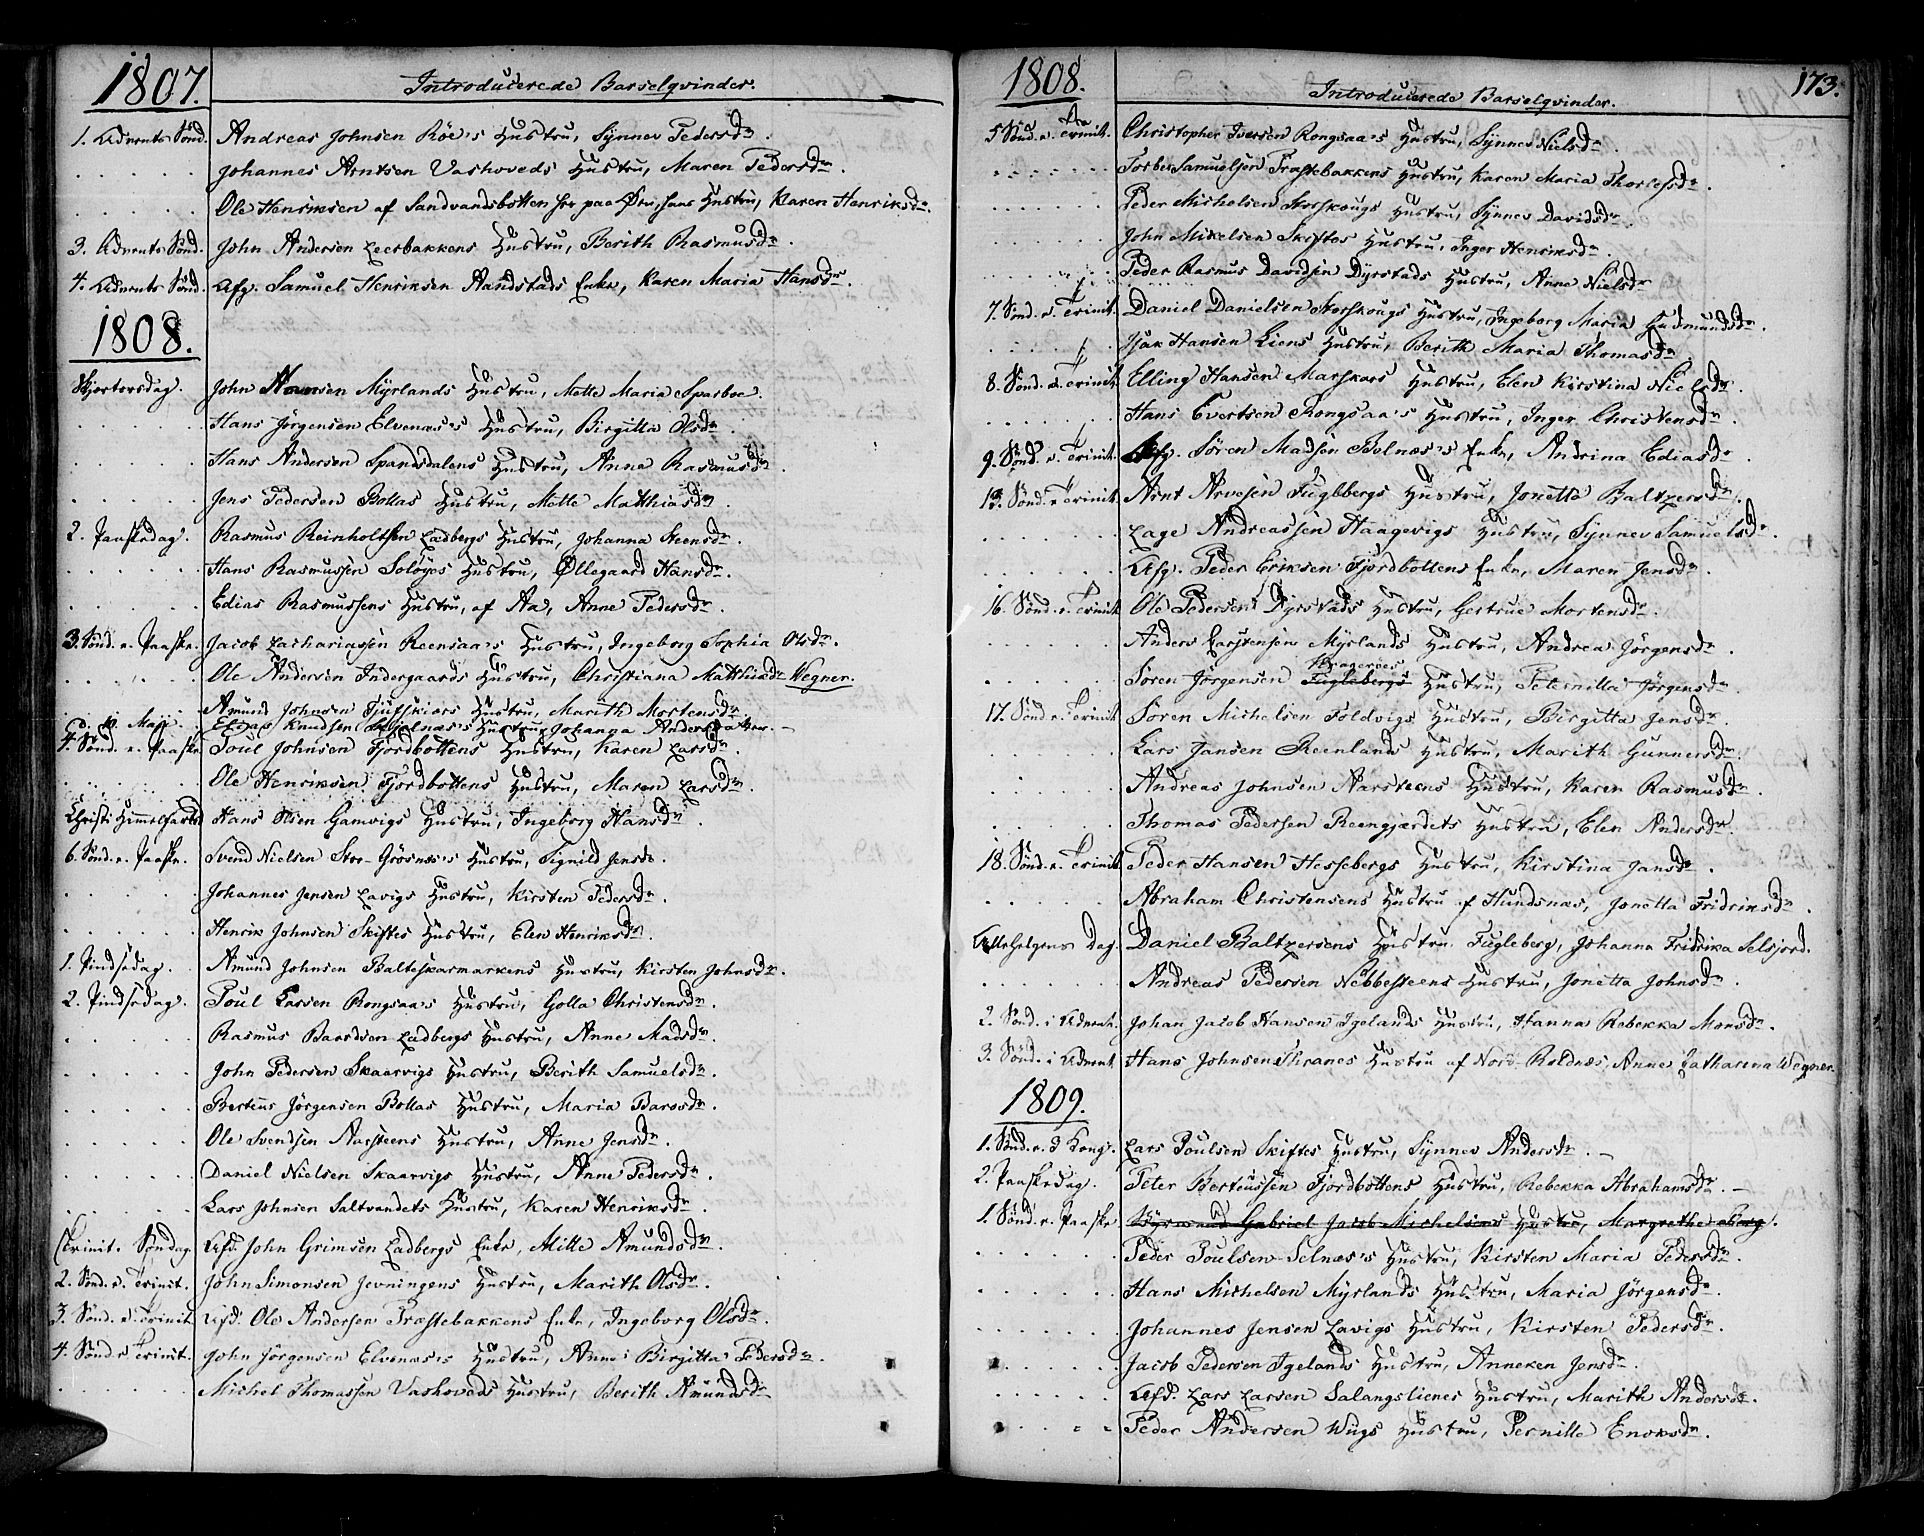 1807.
Introducerede Barselqvinder.
1. Advents Sönd. Andreas Johnsen Röe's Hustru, Synnev Pedersdr.
Johannes Arntsen Vashoveds Hustru, Maren Pedersdr.
Ole Henriksen af Sandvandsbotten her paa Øen, hans Hustru, Karen Henriksdr.
3. Advents Sönd. John Andersen Leerbakkens Hustru, Berith Rasmusdr.
4. Advents Sönd. Afg. Samuel Henriksen Aandstads Enke, Karen Maria Hansdr.
1808.
Skjertorsdag. John Hansen Myrlands Hustru, Mette Maria Sparboe.
Hans Jörgensen Elvenæs's Hustru, Birgitta Olsdr.
Hans Andersen Spandsdalens Hustru, Anna Rasmusdr.
Jens Pedersen Bollas Hustru, Mette Matthiasdr.
2. Paaskedag. Rasmus Reinholtsen Ladbergs Hustru, Johanna Steensdr.
Hans Rasmussen Soløyes Hustru, Øllegaard Hansdr.
Edias Rasmussens Hustru, af Aa, Anne Pedersdr.
3. Sönd. e. Paaske. Jacob Zachariassen Reensaa's Hustru, Ingeborg Sophia Olsdr.
Ole Andersen Indergaards Hustru, Christiana Matthiædr Wegner.
Amund Johnsen Tjufskiærs Hustru, Marith Mortensdr
Maji Elias Knudsen Selnæs's Hustru Johanna Andersdatter.
4. Sönd. e. Paaske Poul Johnsen Fjordbottens Hustru, Karen Larsdr.
Ole Henriksen Fjordbottens Hustru, Maren Larsdr.
Christi Himmelfartsd Hans Olsen Gamvigs Hustru, Ingeborg Hansdr.
6. Sönd. e. Paaske. Svend Nielsen Stor-Grösnæs's Hustru, Signild Jensdr.
Johannes Jensen Lavigs Hustru, Kirsten Pedersdr.
Henrik Johnsen Skiftes Hustru, Elen Henriksdr.
1. Pindsedag. Amund Johnsen Balteskarmarkens Hustru, Kirsten Johnsdr.
2. Pindsedag. Poul Larsen Rongsaa's Hustru, Golla Christensdr.
Rasmus Baardsen Ladbergs Hustru, Anne Madsdr.
John Pedersen Skaarvigs Hustru, Berith Samuelsdr.
Berteus Jörgensen Bollas Hustru, Maria Barosdr.
Ole Svendsen Aarsteens Hustru, Anne Jensdr.
Daniel Nielsen Skaarvigs Hustru, Anne Pedersdr.
Lars Johnsen Saltvandets Hustru, Karen Henriksdr.
Trinit. Söndag. Afd. John Grimsen Ladbergs Enke, Mille Amundsdr.
2. Sönd. e. Trinit. John Simonsen Jevningens Hustru, Marith Olsdr.
3. Sönd. e. Trinit. Afd. Ole Andersen Træstebakkens Enke, Ingeborg Olsdr.
4. Sönd. e. Trinit. John Jörgensen Elvenæs's Hustru, Anne Birgitta Pedersdr.
Michel Thomassen Vashoveds Hustru, Berith Amundsdr
1808.
Introducerede Barselqvinder.
173.
5 Sönd. e. Trinit. Christopher Iversen Rongsaa's Hustru, Synnev Nielsdr.
Torber Samuelsen Træstebakkens Hustru, Karen Maria Thorlefsdr.
Peder Michelsen Storskougs Hustru, Synnev Davidsdr.
John Mikelsen Skiftes Hustru, Inger Henriksdr.
Peder Rasmus Davidsen Dyrstads Hustru, Anne Nielsdr
7. Sönd. e. Trinit. Daniel Danielsen Storskougs Hustru, Ingeborg Maria Gudmundsdr.
Isak Hansen Liens Hustru, Berith Maria Thomasdr
8. Sönd. e. Trinit. Elling Hansen Marskars Hustru, Elen Kirstina Nielsdr.
Hans Evertsen Rongsaa's Hustru, Inger Christensdr.
9. Sönd. e. Trinit. Afg. Sören Madsen Bolnæs's Enke, Andrina Ediasdr.
13. Sönd. e. Trinit. Arnt Arvesen Fuglbergs Hustru, Jonetta Baltzersdr.
Lage Andreassen Haagevigs Hustru, Synnev Samuelsdr.
Afg. Peder Eriksen Fjordbottens Enke, Maren Jensdr.
16. Sönd. e. Trinit. Ole Pedersen Dyrstads Hustru, Gertrue Mortensdr.
Anders Carstensen Myrlands Hustru, Andrea Jörgensdr.
Kragerøes
Sören Jörgensen Fuglebergs Hustru, Peternilla Jörgensdr.
17. Sönd. e. Trinit. Sören Michelsen Foldvigs Hustru, Birgitta Jensdr.
Lars Jansen Reenlands Hustru, Marith Gunnersdr.
Andreas Johnsen Aarsteens Hustru, Karen Rasmusdr.
Thomas Pedersen Reengjærdets Hustru, Elen Andersdr.
18. Sönd. e. Trinit. Peder Hansen Hessebergs Hustru, Kirstina Jansdr.
Abraham Christensens Hustru af Hundsnæs, Jonetta Fridriksdr.
Allehelgens Dag. Daniel Baltzersens Hustru Fugleberg, Johanna Fridrika Selsjord.
Andreas Pedersen Nebbesteens Hustru, Jonetta Johnsdr.
2. Sönd. i Advent. Johan Jacob Hansen Igelands Hustru, Hanna Rebekka Monsdr.
3. Sönd. i Advent. Hans Johnsen Thranes Hustru af Nord-Roldnæs, Anne Catharina Wegner.
1809.
1. Sönd. e. 3 Kong. Lars Poulsen Skiftes Hustru, Synnev Andersdr.
2. Paaskedag. Peter Berteussen Fjordbottens Hustru, Rebekka Abrahamsdr.
1. Sönd. e. Paaske Gabriel Jacob Michelsens Hustru, Margrethe
Peder Poulsen Selnæs's Hustru, Kirsten Maria Pedersdr.
Hans Michelsen Myrlands Hustru, Maria Jörgensdr.
Johannes Jensen Lavigs Hustru, Kirsten Pedersdr.
Jacob Pedersen Igelands Hustru, Anneken Jensdr.
Afd. Lars Larsen Salangslienes Hustru, Marith Andersdr.
Peder Andersen Wiigs Hustru, Pernille Enoksdr.